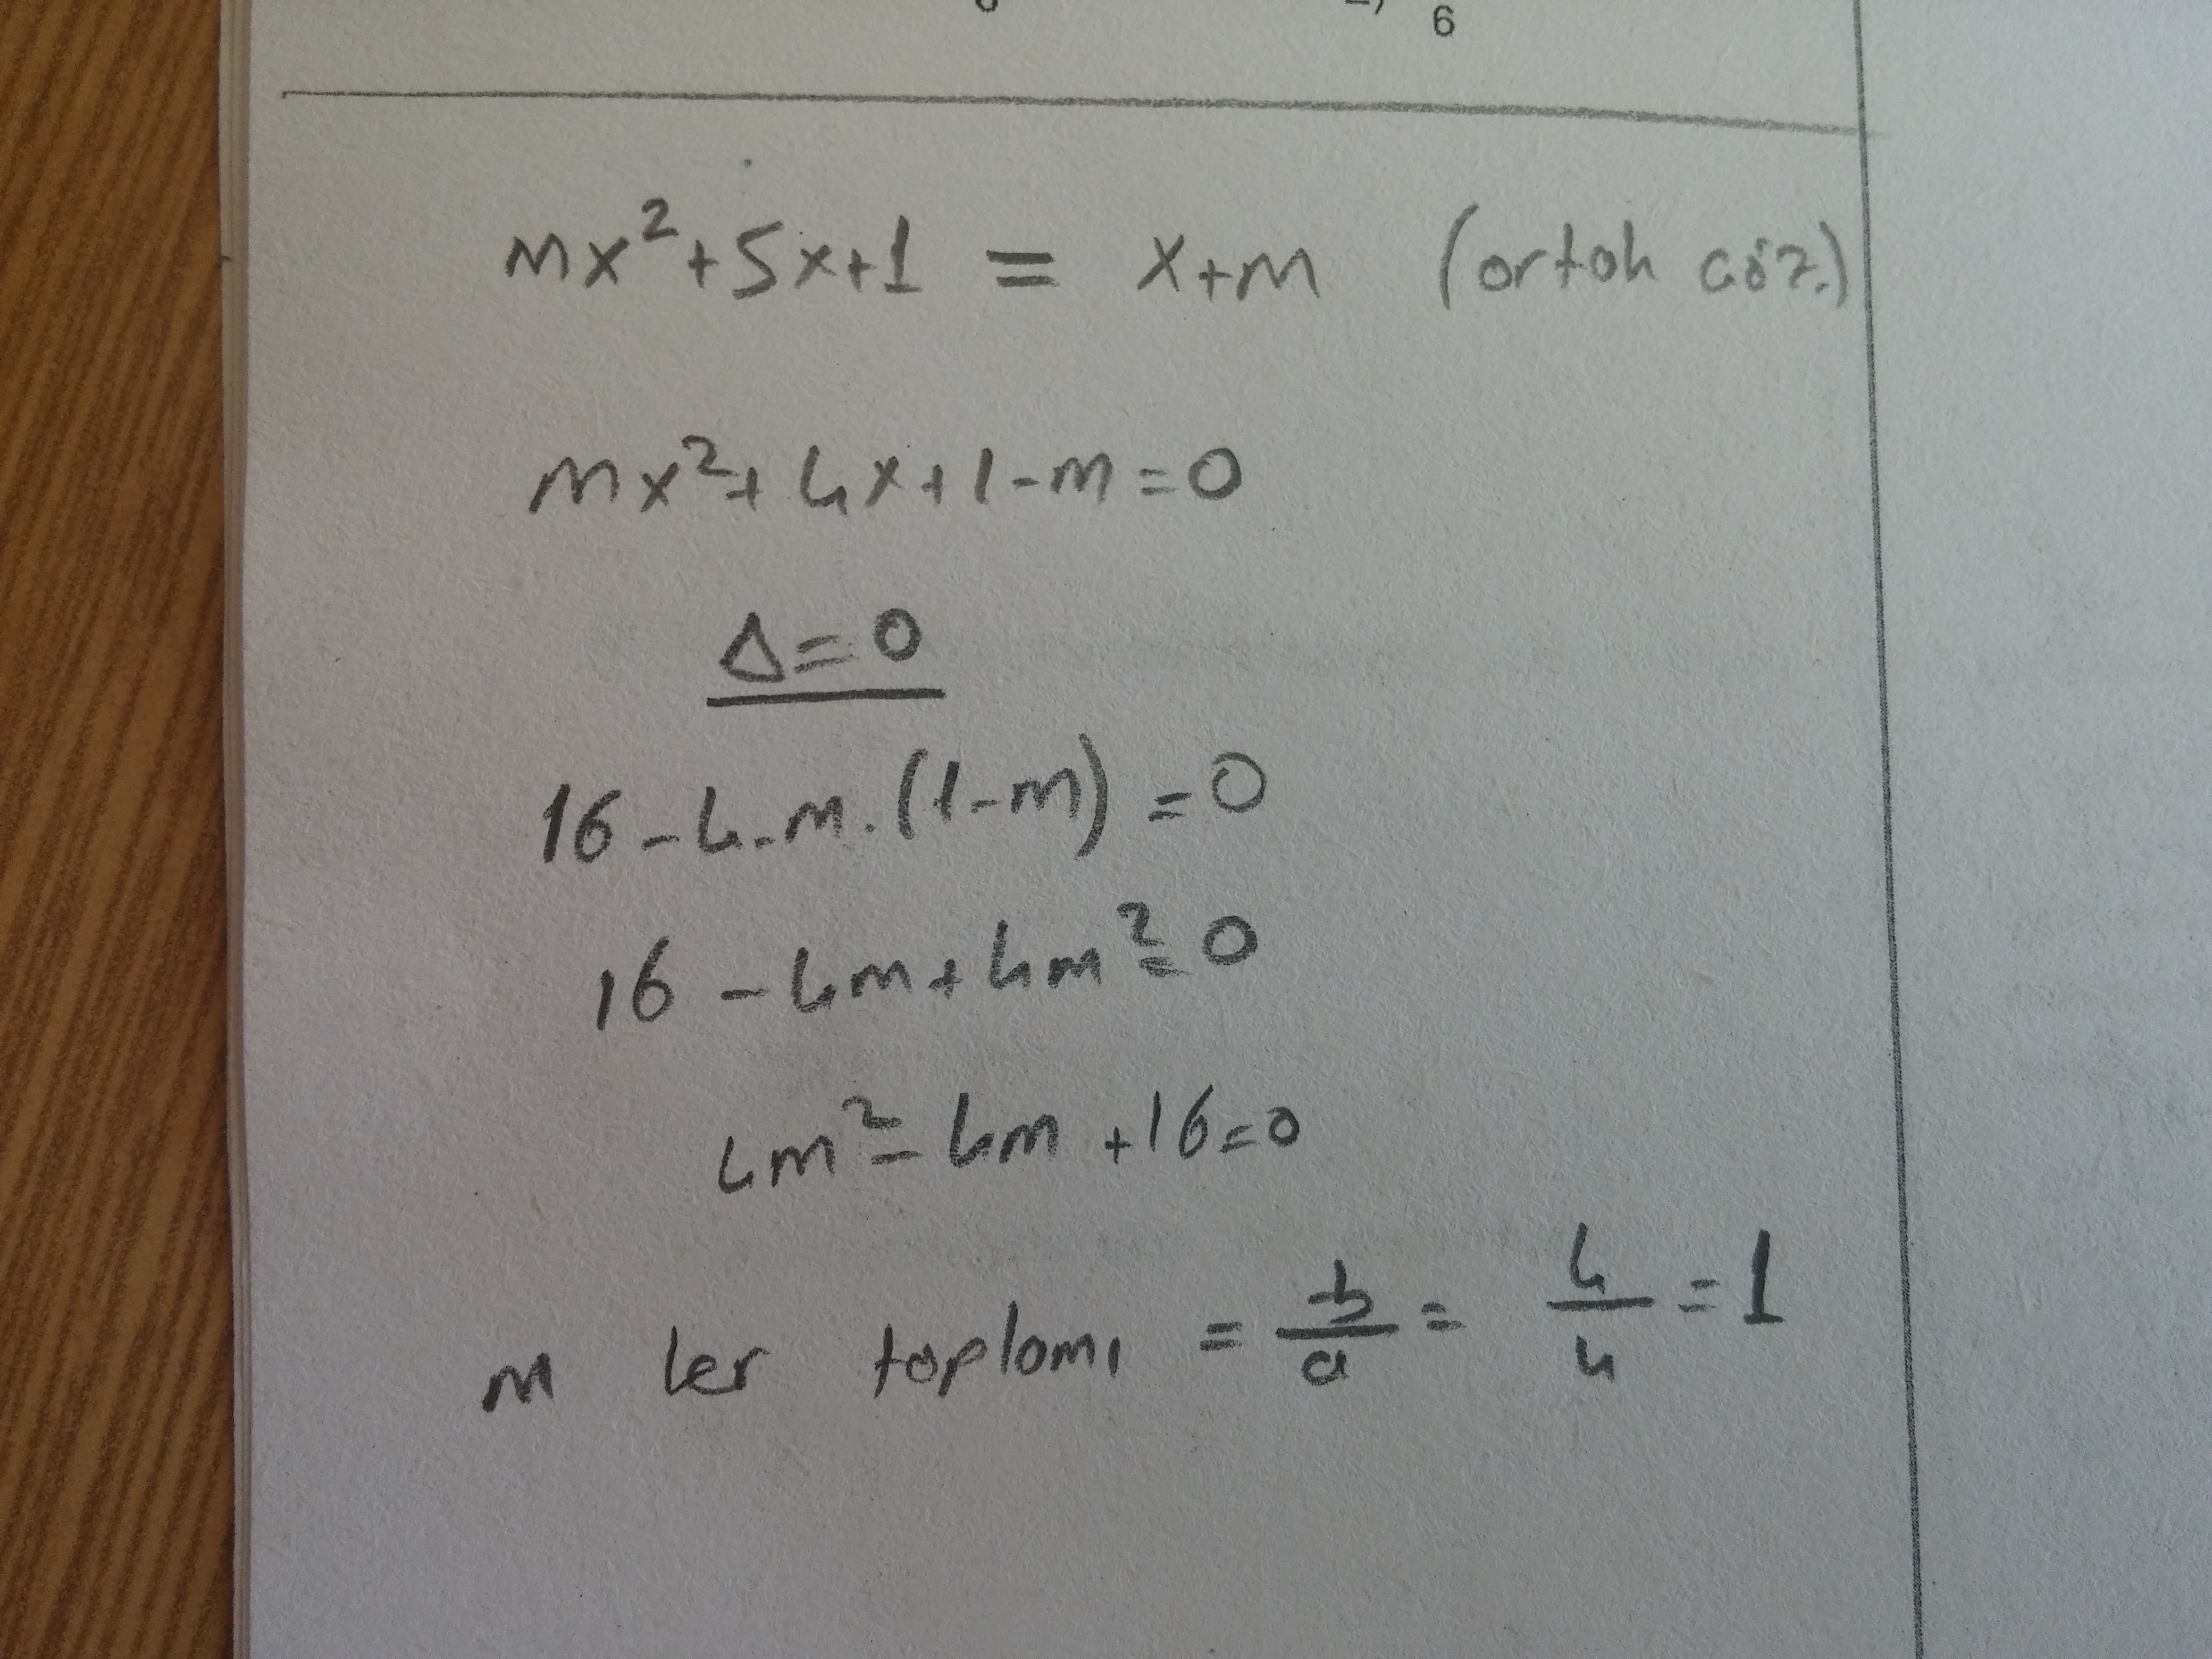 6
mx²+5x+1 = x+m (ortak çöz.)
mx²+4x+1-m=0
Δ=0
16-4.m.(1-m)=0
16-4m+4m²=0
4m²-4m+16=0
m ler toplamı = -b/a = 4/4 = 1